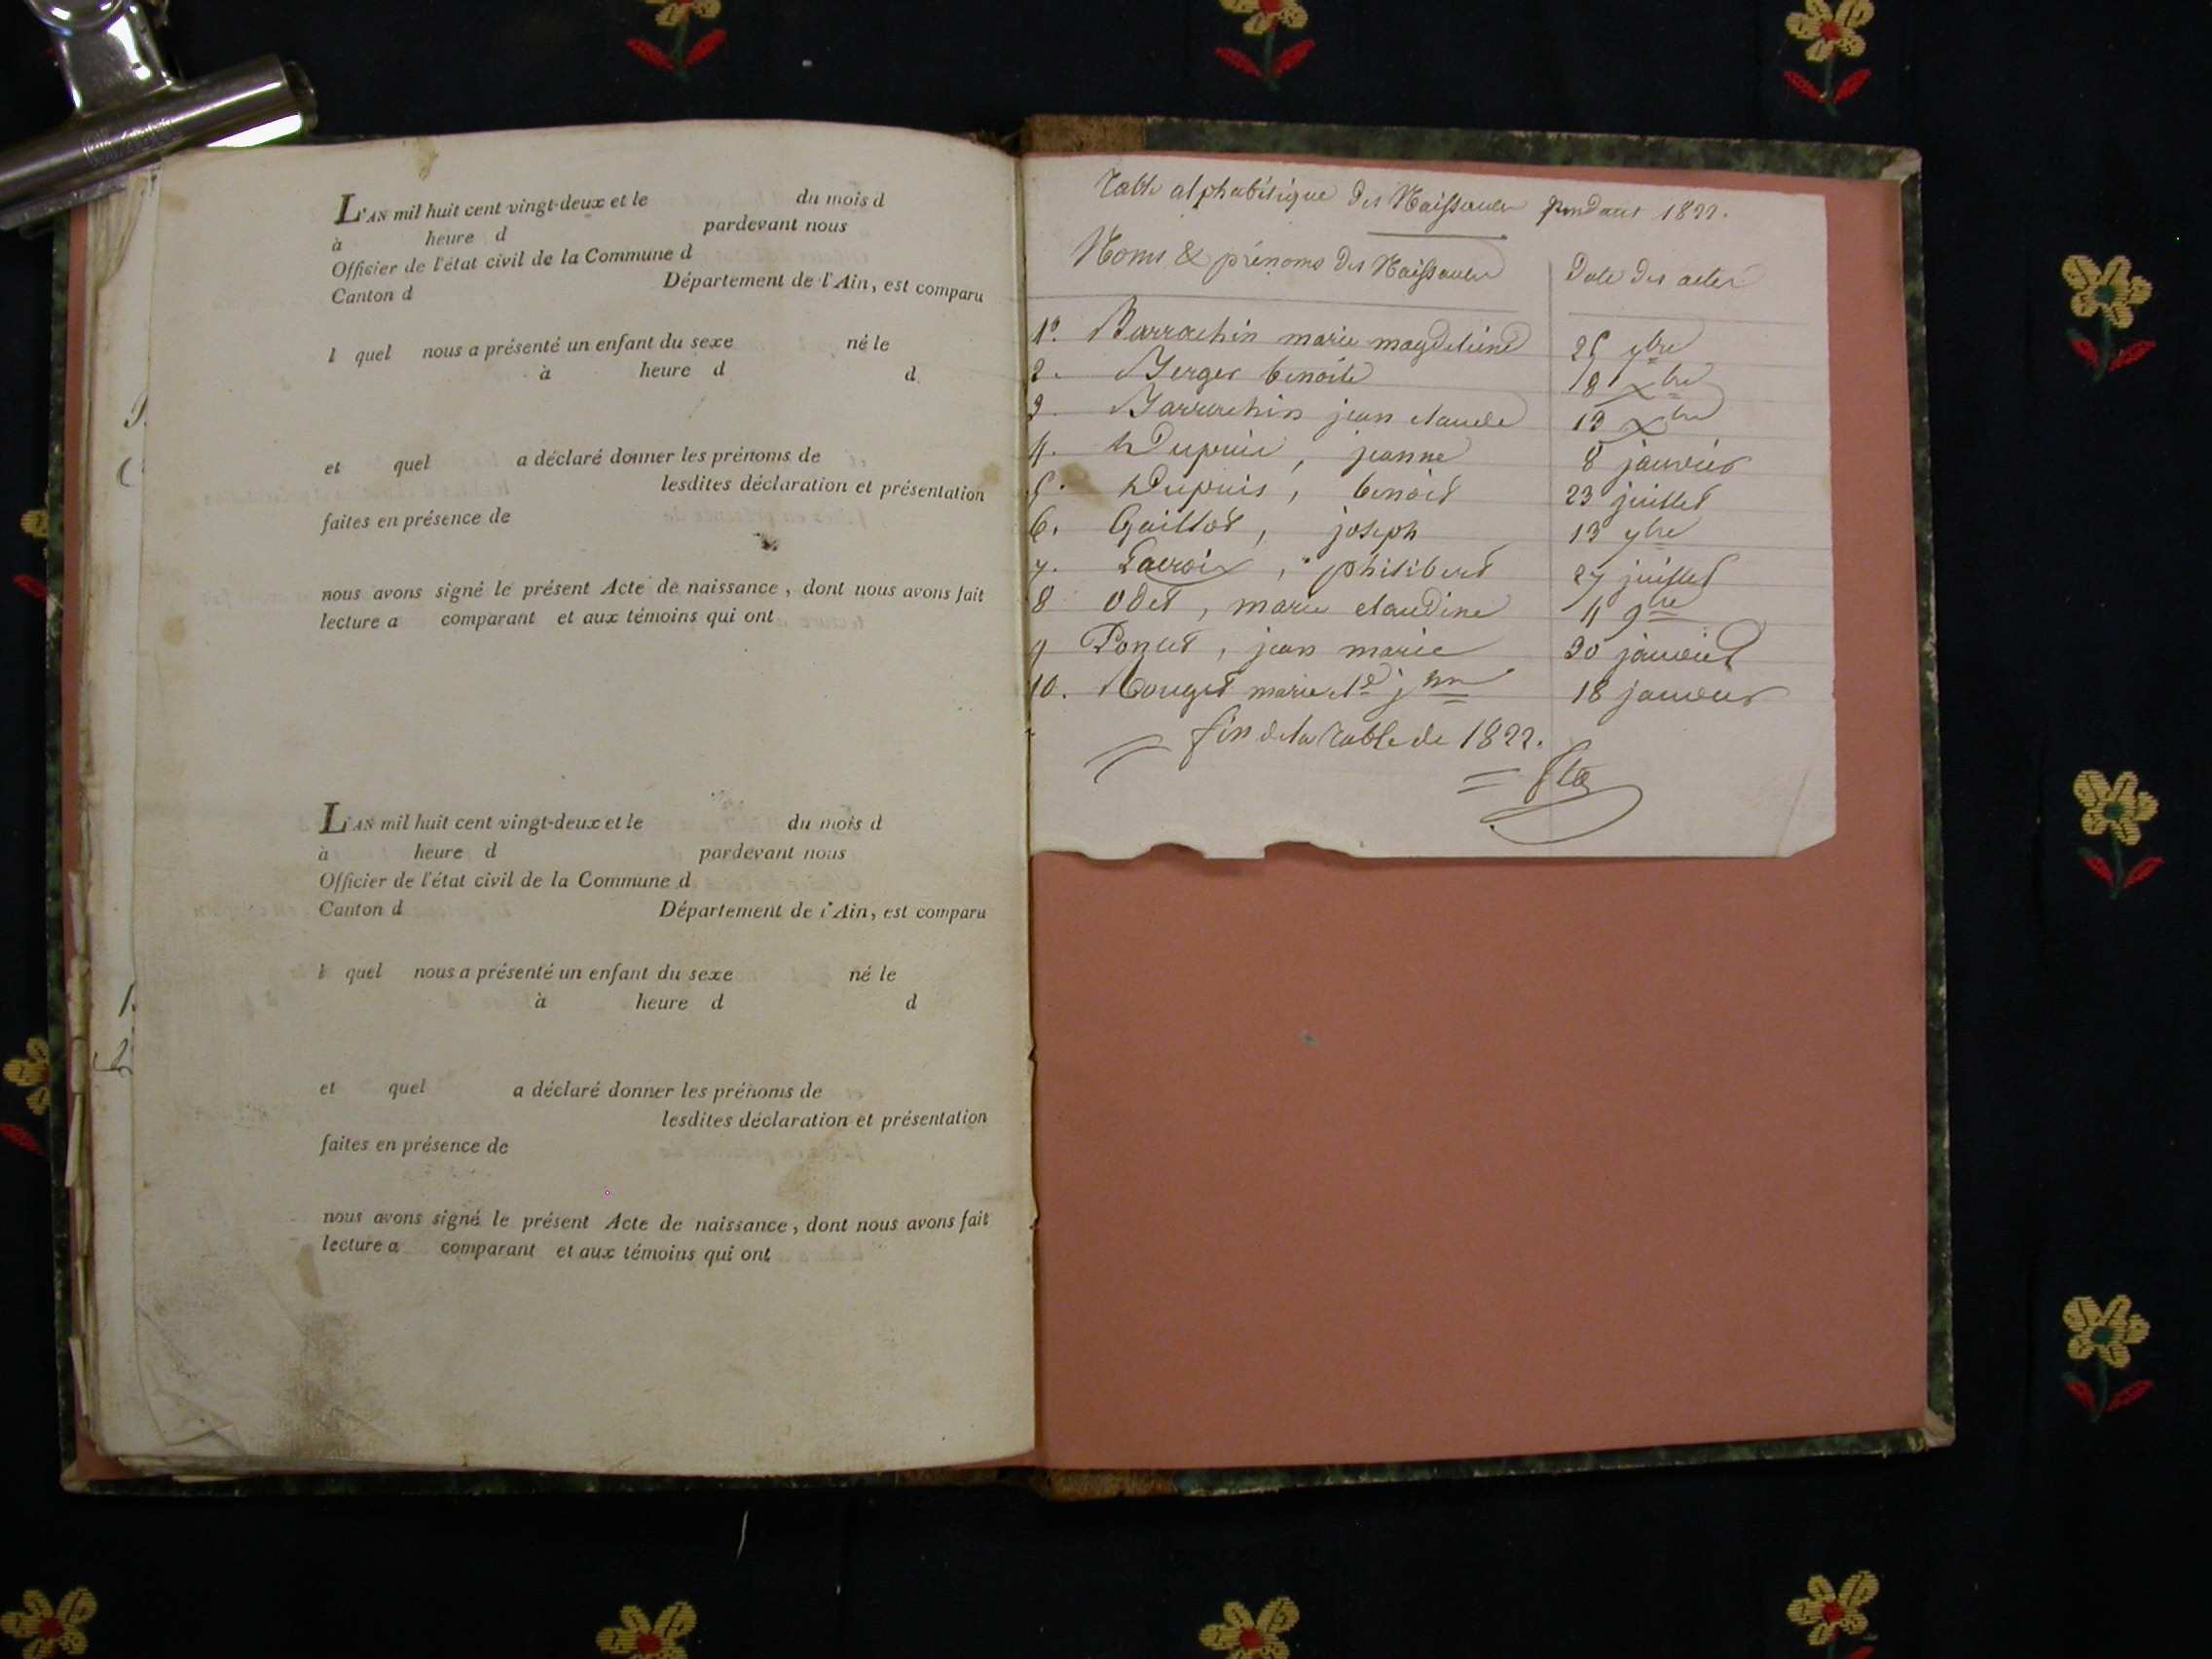 L'AN mil huit cent vingt-deux et le du mois d
à heure d pardevant nous
Officier de l'état civil de la Commune d
Canton d Département de l'Ain, est comparu
l quel nous a présenté un enfant du sexe né le
à heure d d
et quel a déclaré donner les prénoms de
lesdites déclaration et présentation
faites en présence de
nous avons signé le présent Acte de naissance, dont nous avons fait
lecture a comparant et aux témoins qui ont
L'AN mil huit cent vingt-deux et le du mois d
à heure d pardevant nous
Officier de l'état civil de la Commune d
Canton d Département de l'Ain, est comparu
l quel nous a présenté un enfant du sexe né le
à heure d d
et quel a déclaré donner les prénoms de
lesdites déclaration et présentation
faites en présence de
nous avons signé le présent Acte de naissance, dont nous avons fait
lecture a comparant et aux témoins qui ont
Table alphabétique des Naissances pendant 1822.
Noms & prénoms des Naissances Date des actes
1° Barrachin marie magdeleine 7bre
2. Berger benoite 8 Xbre
3. Barrachin jean claude 13 Xbre
4. Dupuis, jeanne 8 janvier
5. Dupuis, benoit 23 juillet
6. Gaillot, joseph 13 7bre
7. Lacroix, philibert 27 juillet
8 Odet, marie claudine 4 9bre
9 Poncet, jean marie 30 janvier
10. Rouget marie 18 janvier
fin de la table de 1822.